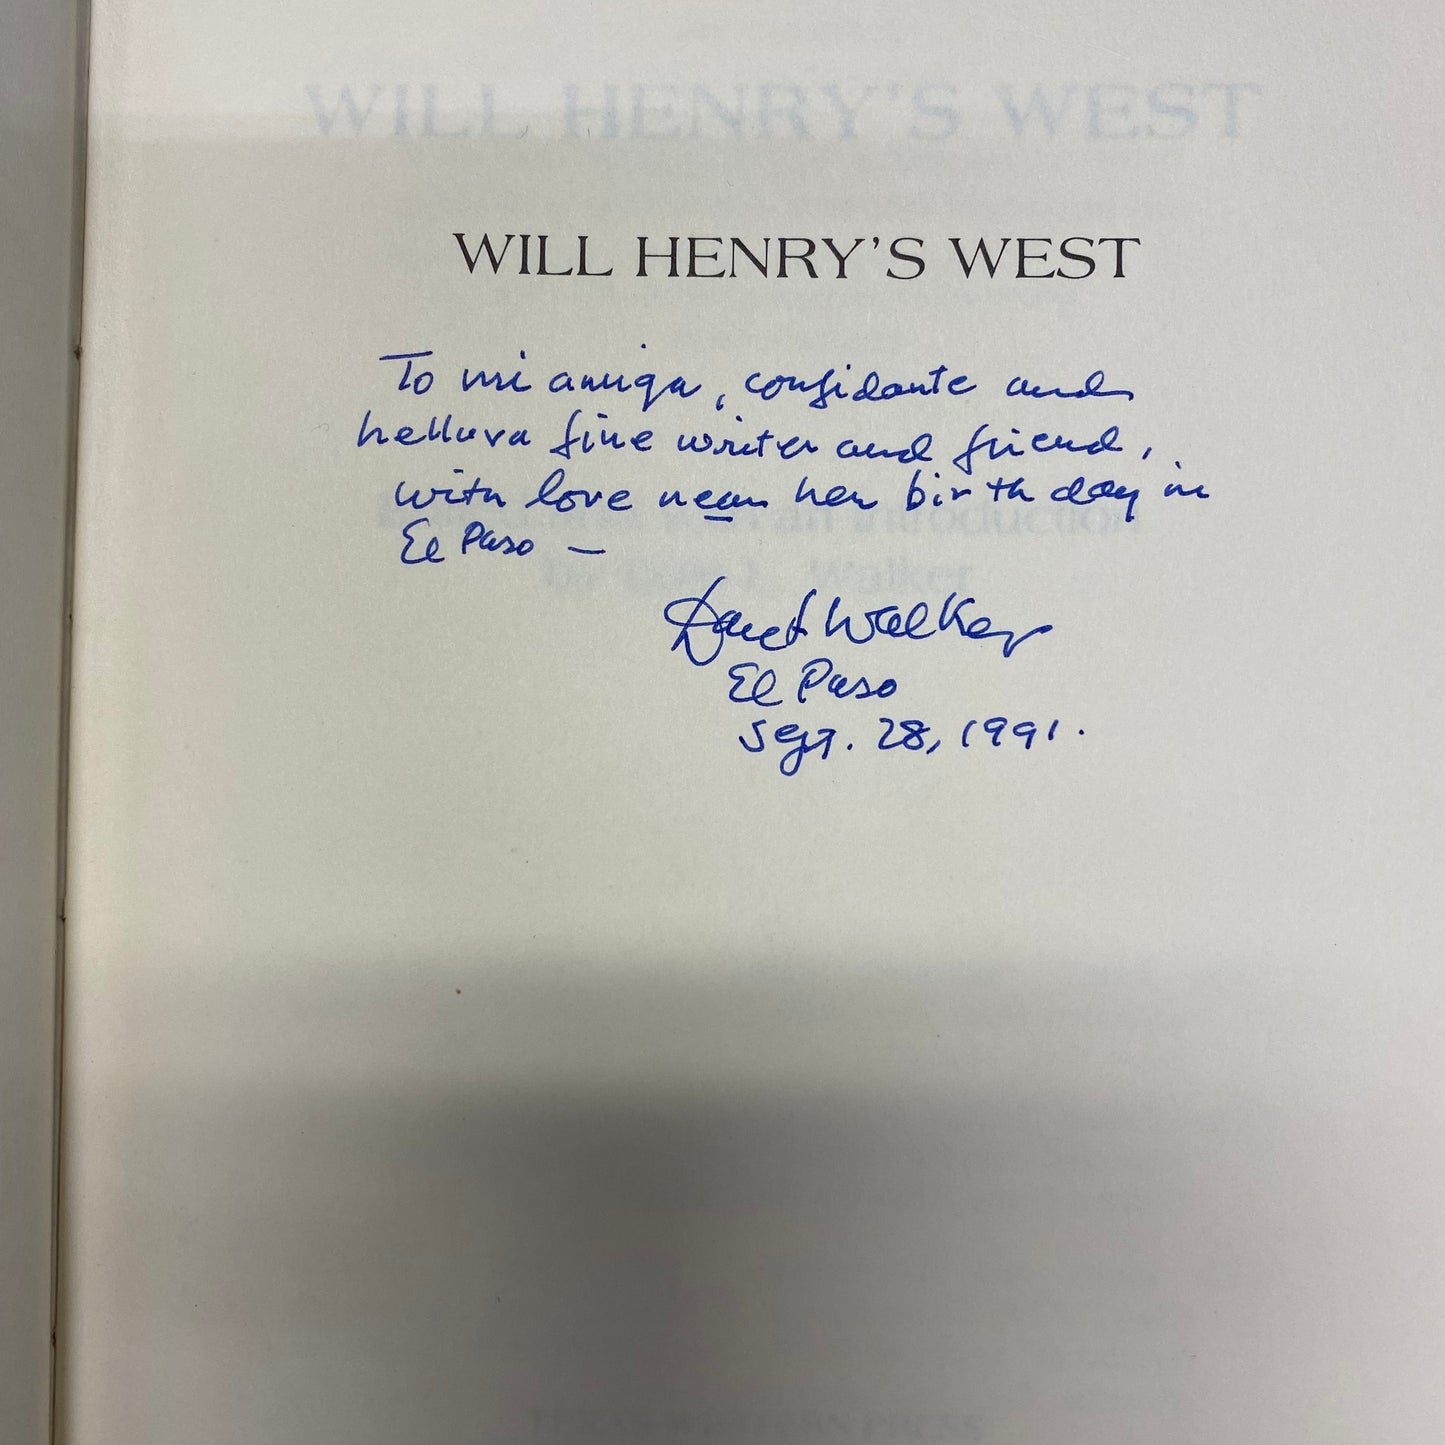 WILL HENRY'S WEST
WILL HENRY'S WEST
To mi amiga, confidante and
helluva fine writer and friend,
with love near her birthday in
El Paso —
Walker
El Paso
Sept. 28, 1991.
introduction
by Dale L. Walker
TEXAS WESTERN PRESS